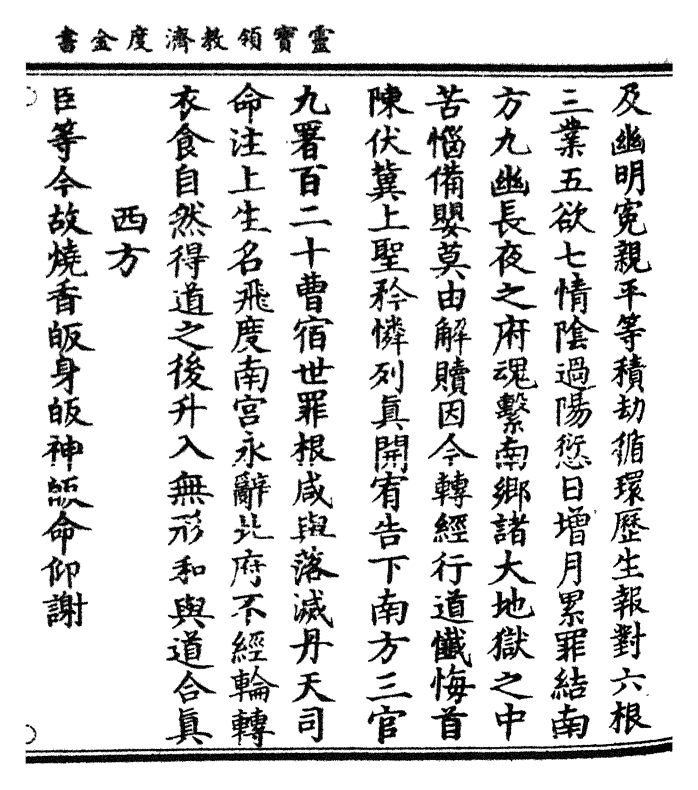 靈寶領教濟度金書
及幽明寃親平等積劫循環歷生報對六根
三業五欲七情陰過陽愆日增月累罪結南
方九幽長夜之府魂繫南鄉諸大地獄之中
苦惱備嬰莫由解贖因今轉經行道懺悔首
陳伏冀上聖矜憐列眞開宥告下南方三官
九署百二十曹宿世罪根咸與落滅丹天司
命注上生名飛度南宮永辭北府不經輪轉
衣食自然得道之後升入無形和與道合眞
西方
臣等今故燒香皈身皈神皈命仰謝